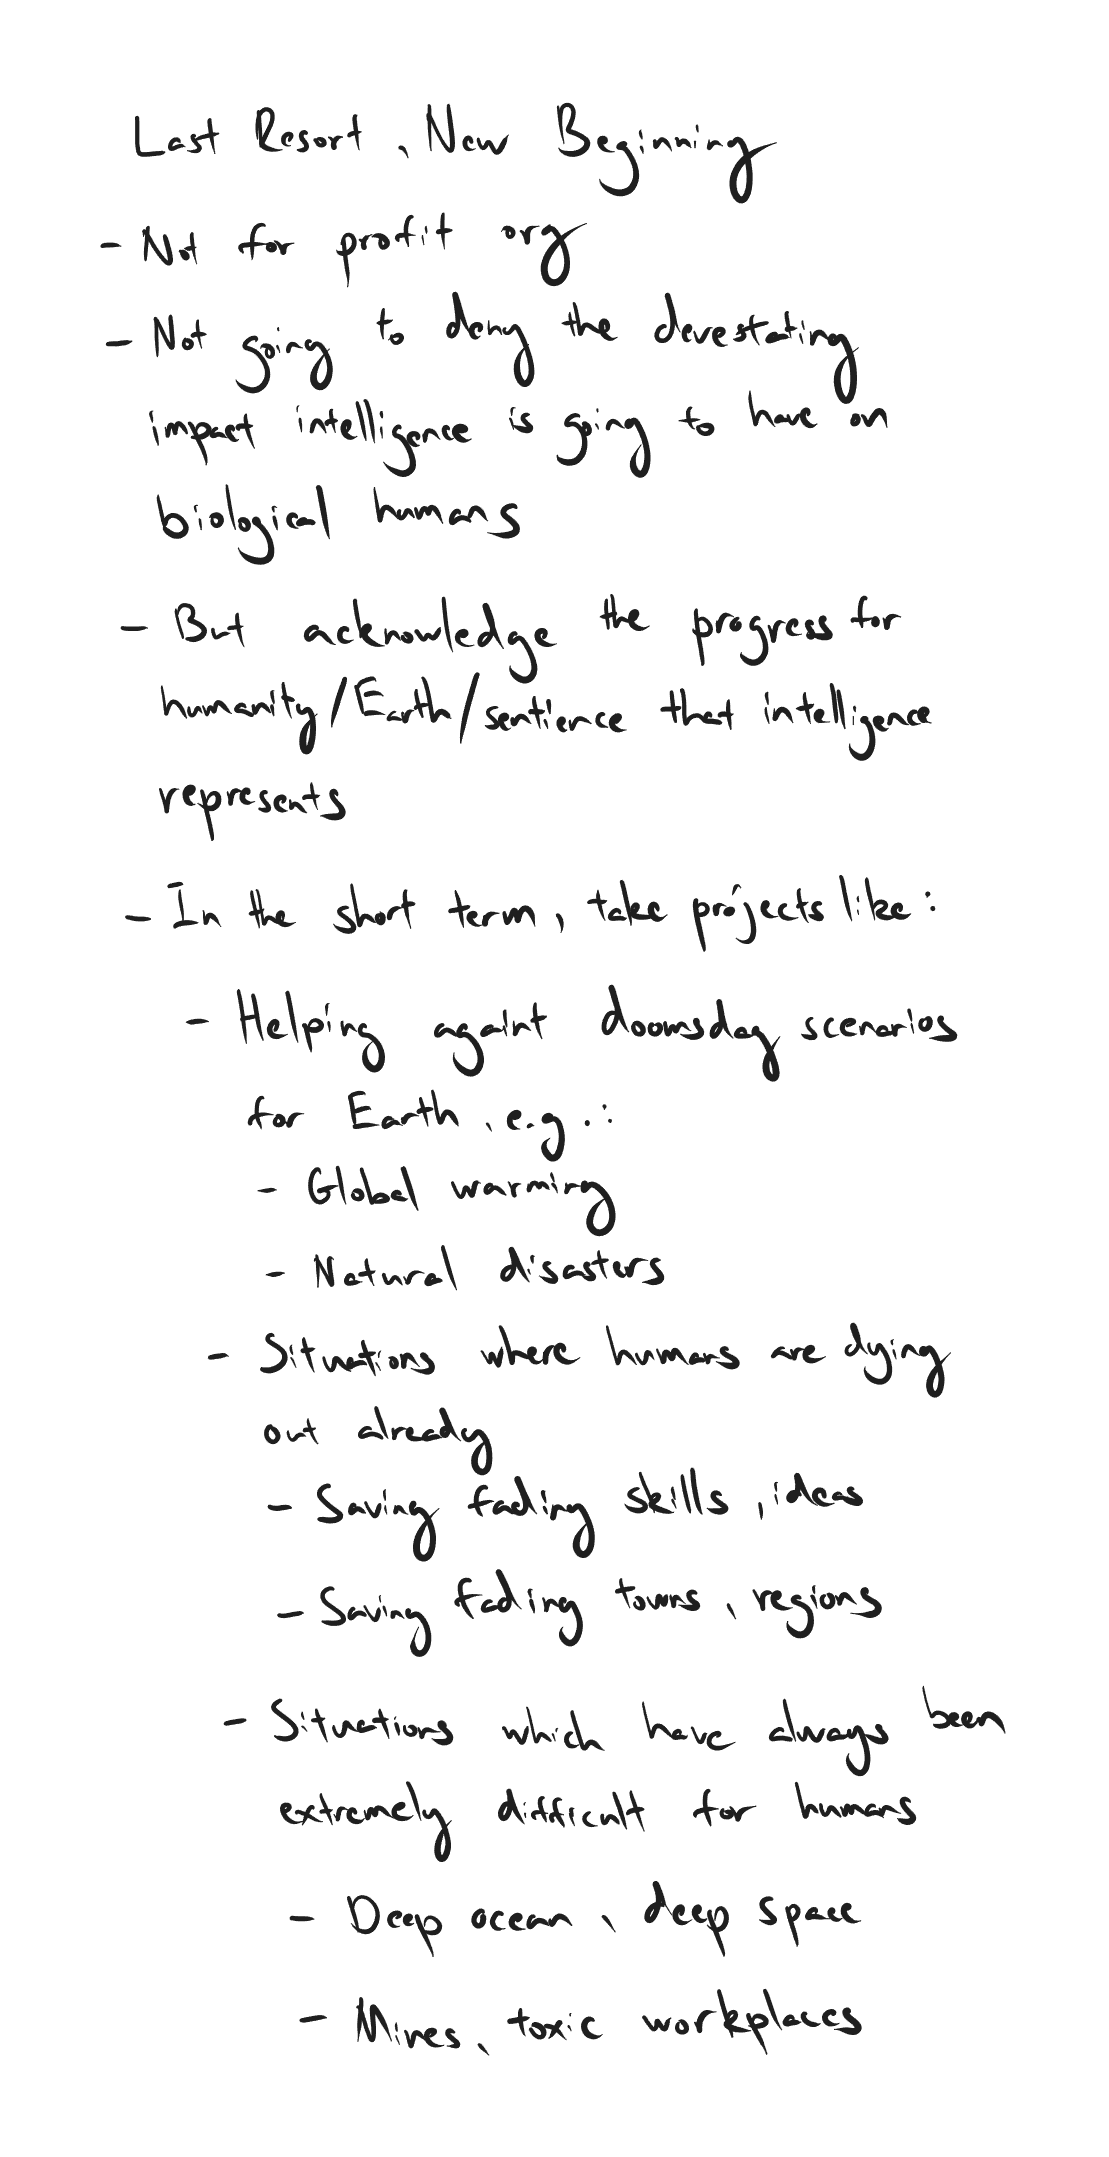 Last Resort, New Beginning
- Not for profit org
- Not going to deny the devestating
impact intelligence is going to have on
biological humans
- But acknowledge the progress for
humanity/Earth/sentience that intelligence
represents
- In the short term, take projects like:
- Helping againt doomsday scenarios
for Earth, e.g.:
- Global warming
- Natural disasters
- Situations where humans are dying
out already
- Saving fading skills, ideas
- Saving fading towns, regions
- Situations which have always been
extremely difficult for humans
- Deep ocean, deep space
- Mines, toxic workplaces